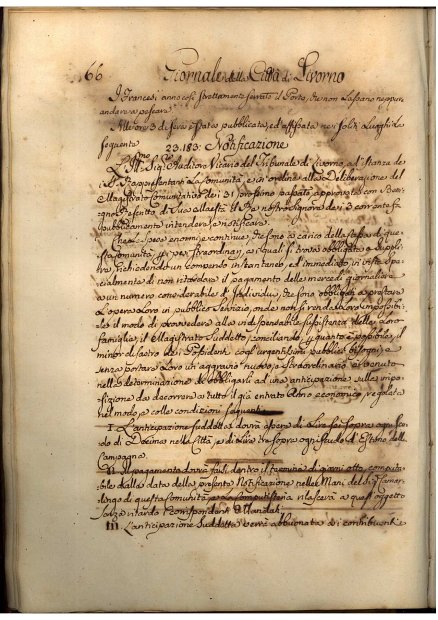 66 Giornale della Città di Livorno
I Francesi anno così strettamente serrato il Porto, che non lassano neppure
andare a pescare
Alle ore 3 di sera è stata pubblicata, ed affissata nei soliti Luoghi la
seguente
23.183: Notificazione
L'Ill.mo Sig.re Auditore Vicario del Tribunale di Livorno, ad istanza dei
Rappresentanti la Comunità, e in ordine alla Deliberazione del
Magistrato Comunitativo dei 31 prossimo passato approvata con Beni
gno Rescritto di Sua Maestà il Re nostro Signore dei 3 corrente fa
pubblicamente intendere, e notificare
Che i pesi enormi, e continui, che sono a carico della Cassa di que
sta Comunità, per straordinari, ai quali si trova obbligata a suppli
re, richiedendo un compenso instantaneo, ed immediato, in vista spe
cialmente di non ritardare il pagamento delle mercedi giornaliere
a un numero considerabile di Individui, che sono obbligati a prestare
l'opera Loro in pubblico servizio, onde non si renda Loro impossibi
le il modo di provvedere alla indispensabile sussistenza delle Loro
famiglie, il Magistrato Suddetto, conciliando per quanto è possibile, il
minor disastro dei Possidenti cogli urgentissimi pubblici bisogni, e
senza portare Loro un aggravio nuovo, e straordinario è venuto
nella determinazione di obbligarli ad una anticipazione sulla impo
sizione da decorrere a tutto il già entrato Anno economico regolata
nel modo, e colle condizioni seguenti
I. L'anticipazione suddetta dovrà essere di Lire sei sopra ogni Scu
do di Decima nella Città, e di Lire tre sopra ogni scudo d'Estimo della
Campagna.
II. Il pagamento dovrà farsi dentro il termine di giorni otto computa
bile dalla data della presente Notificazione nelle Mani del Camar
lengo di questa Comunità, e la Computisteria rilascerà a quest'oggetto
senza ritardo i corrispondenti Mandati.
III. L'anticipazione Suddetta verrà abbuonata ai contribuenti e